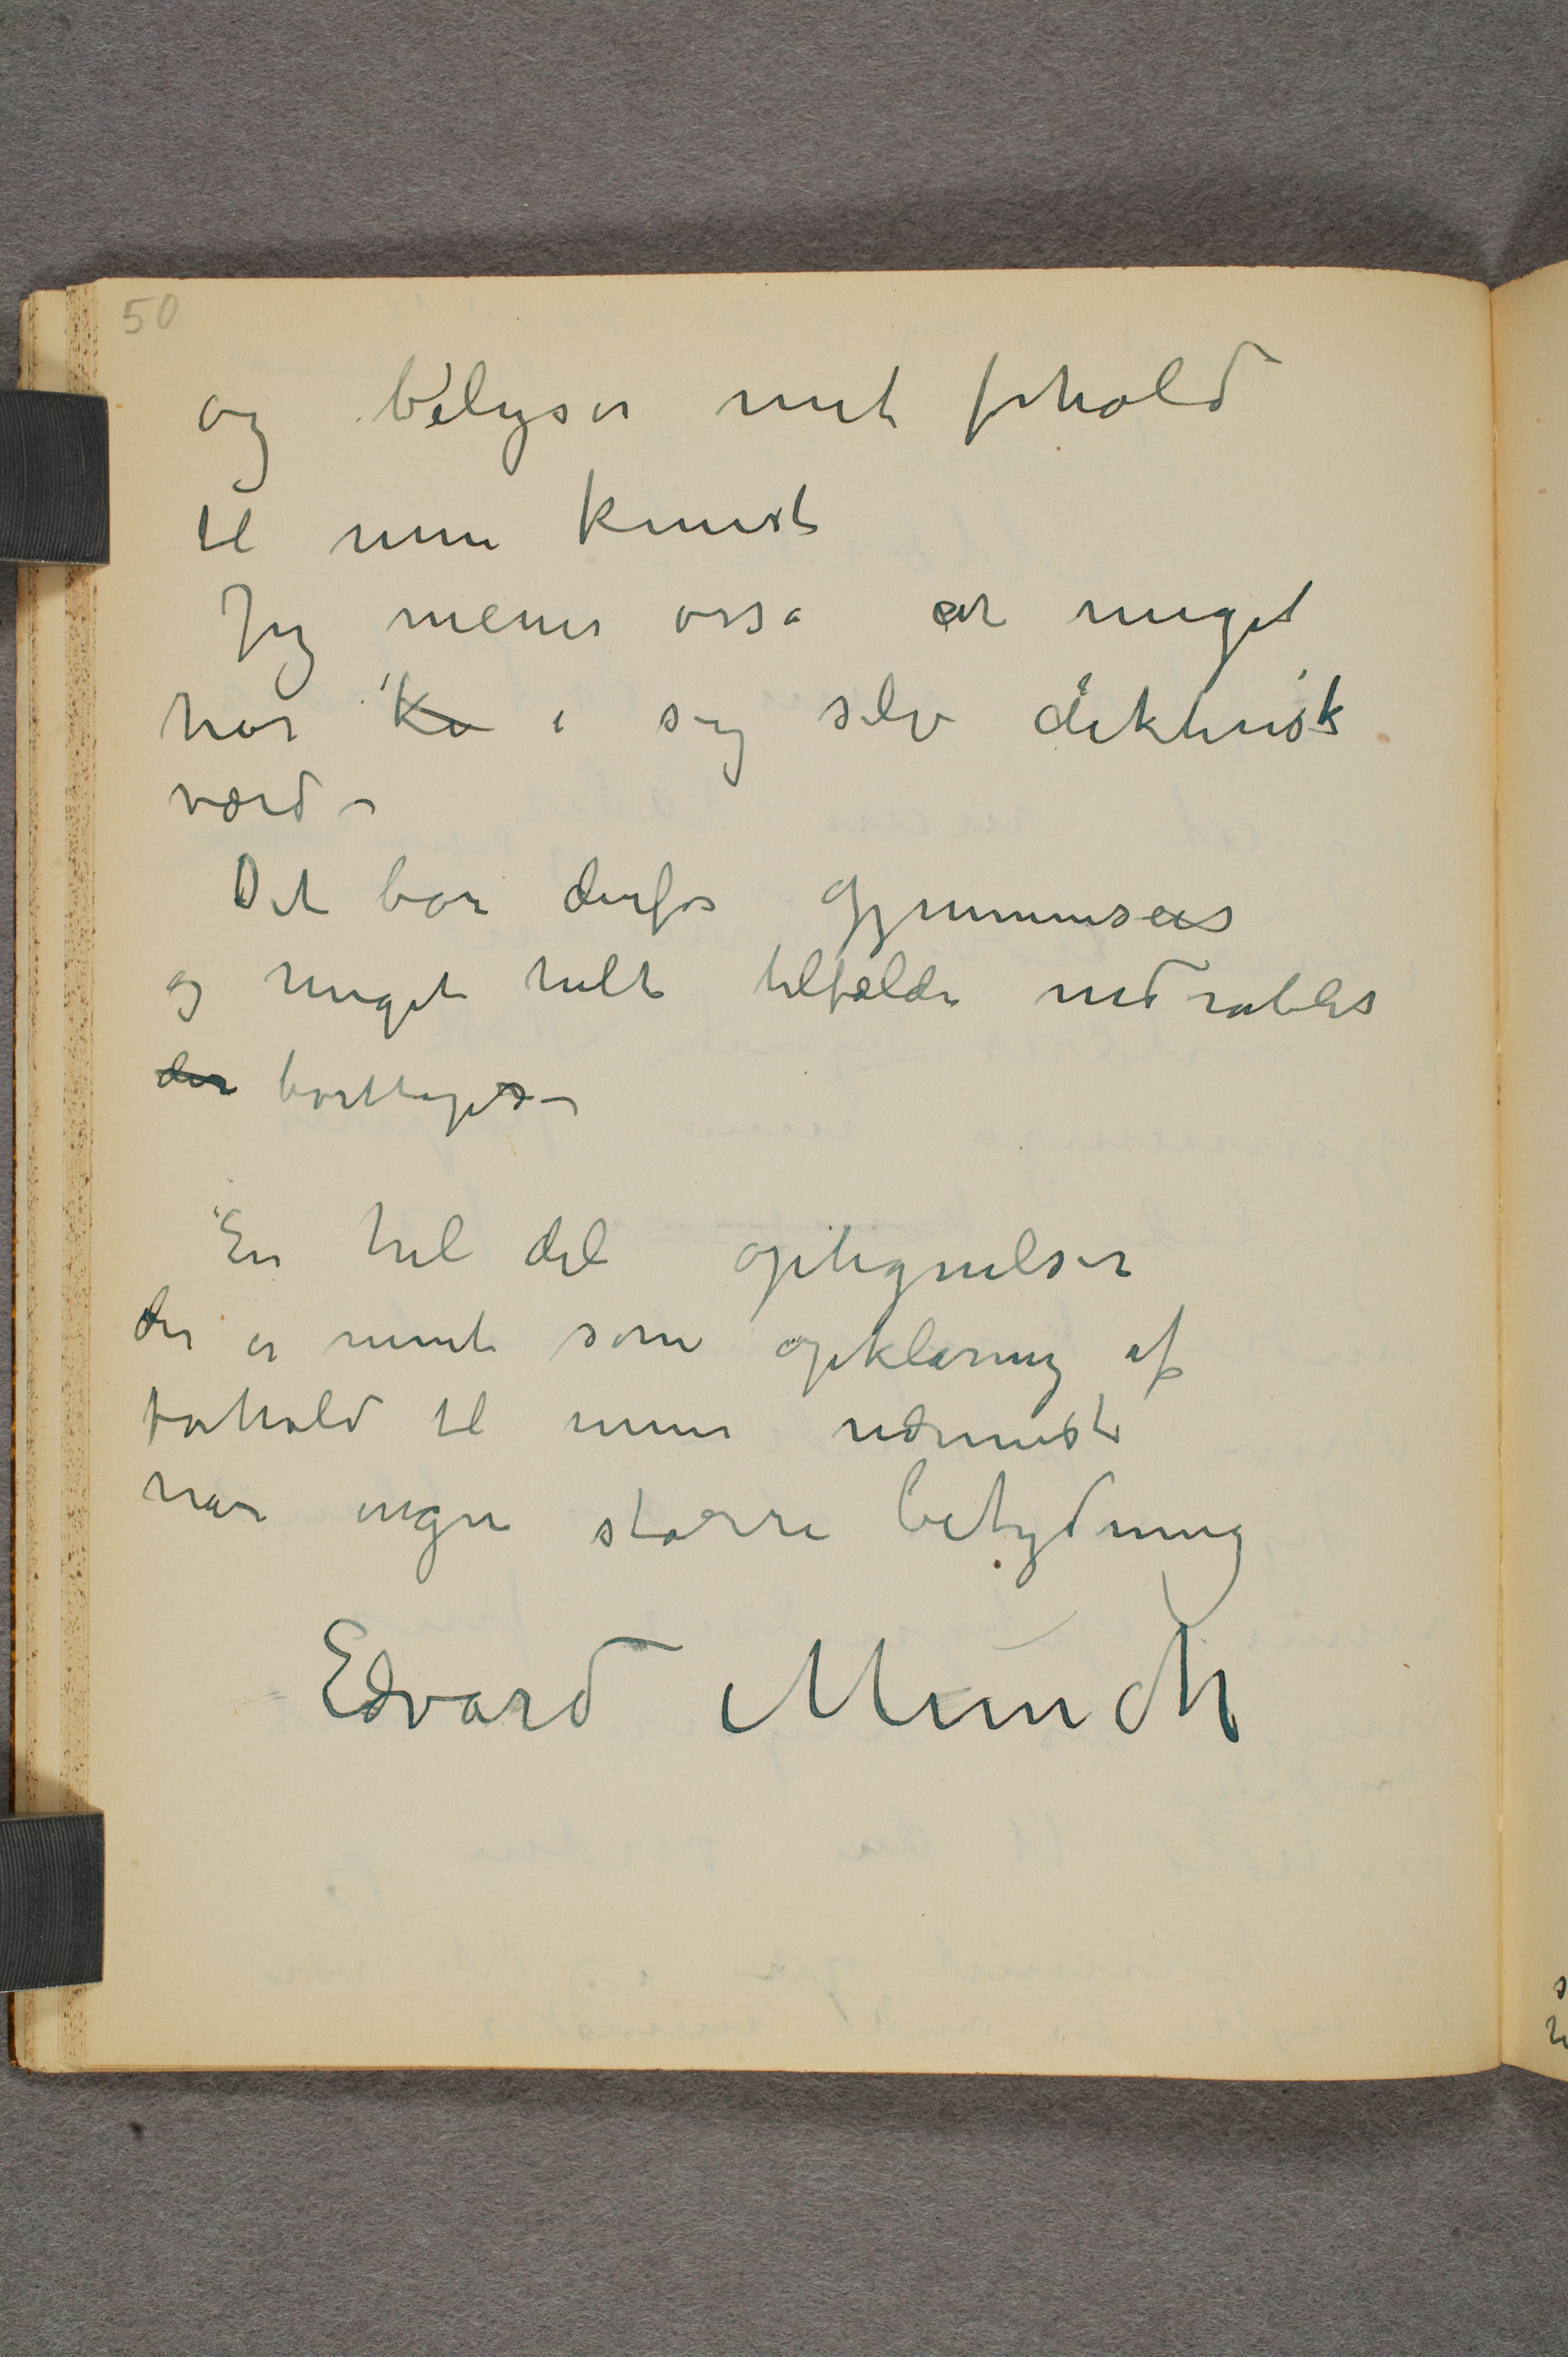 50
og belyser mit forhold
til min kunst
Jeg mener osså at meget
har ka i sig selv dikterisk
værd –
Det bør derfor gjennemsees
og meget helt tilfældi nedrablet
der borttages –
En hel del optegnelser
der er ment som opklaring af
forhold til mine nærmeste
har ingen større betydning
Edvard Munch